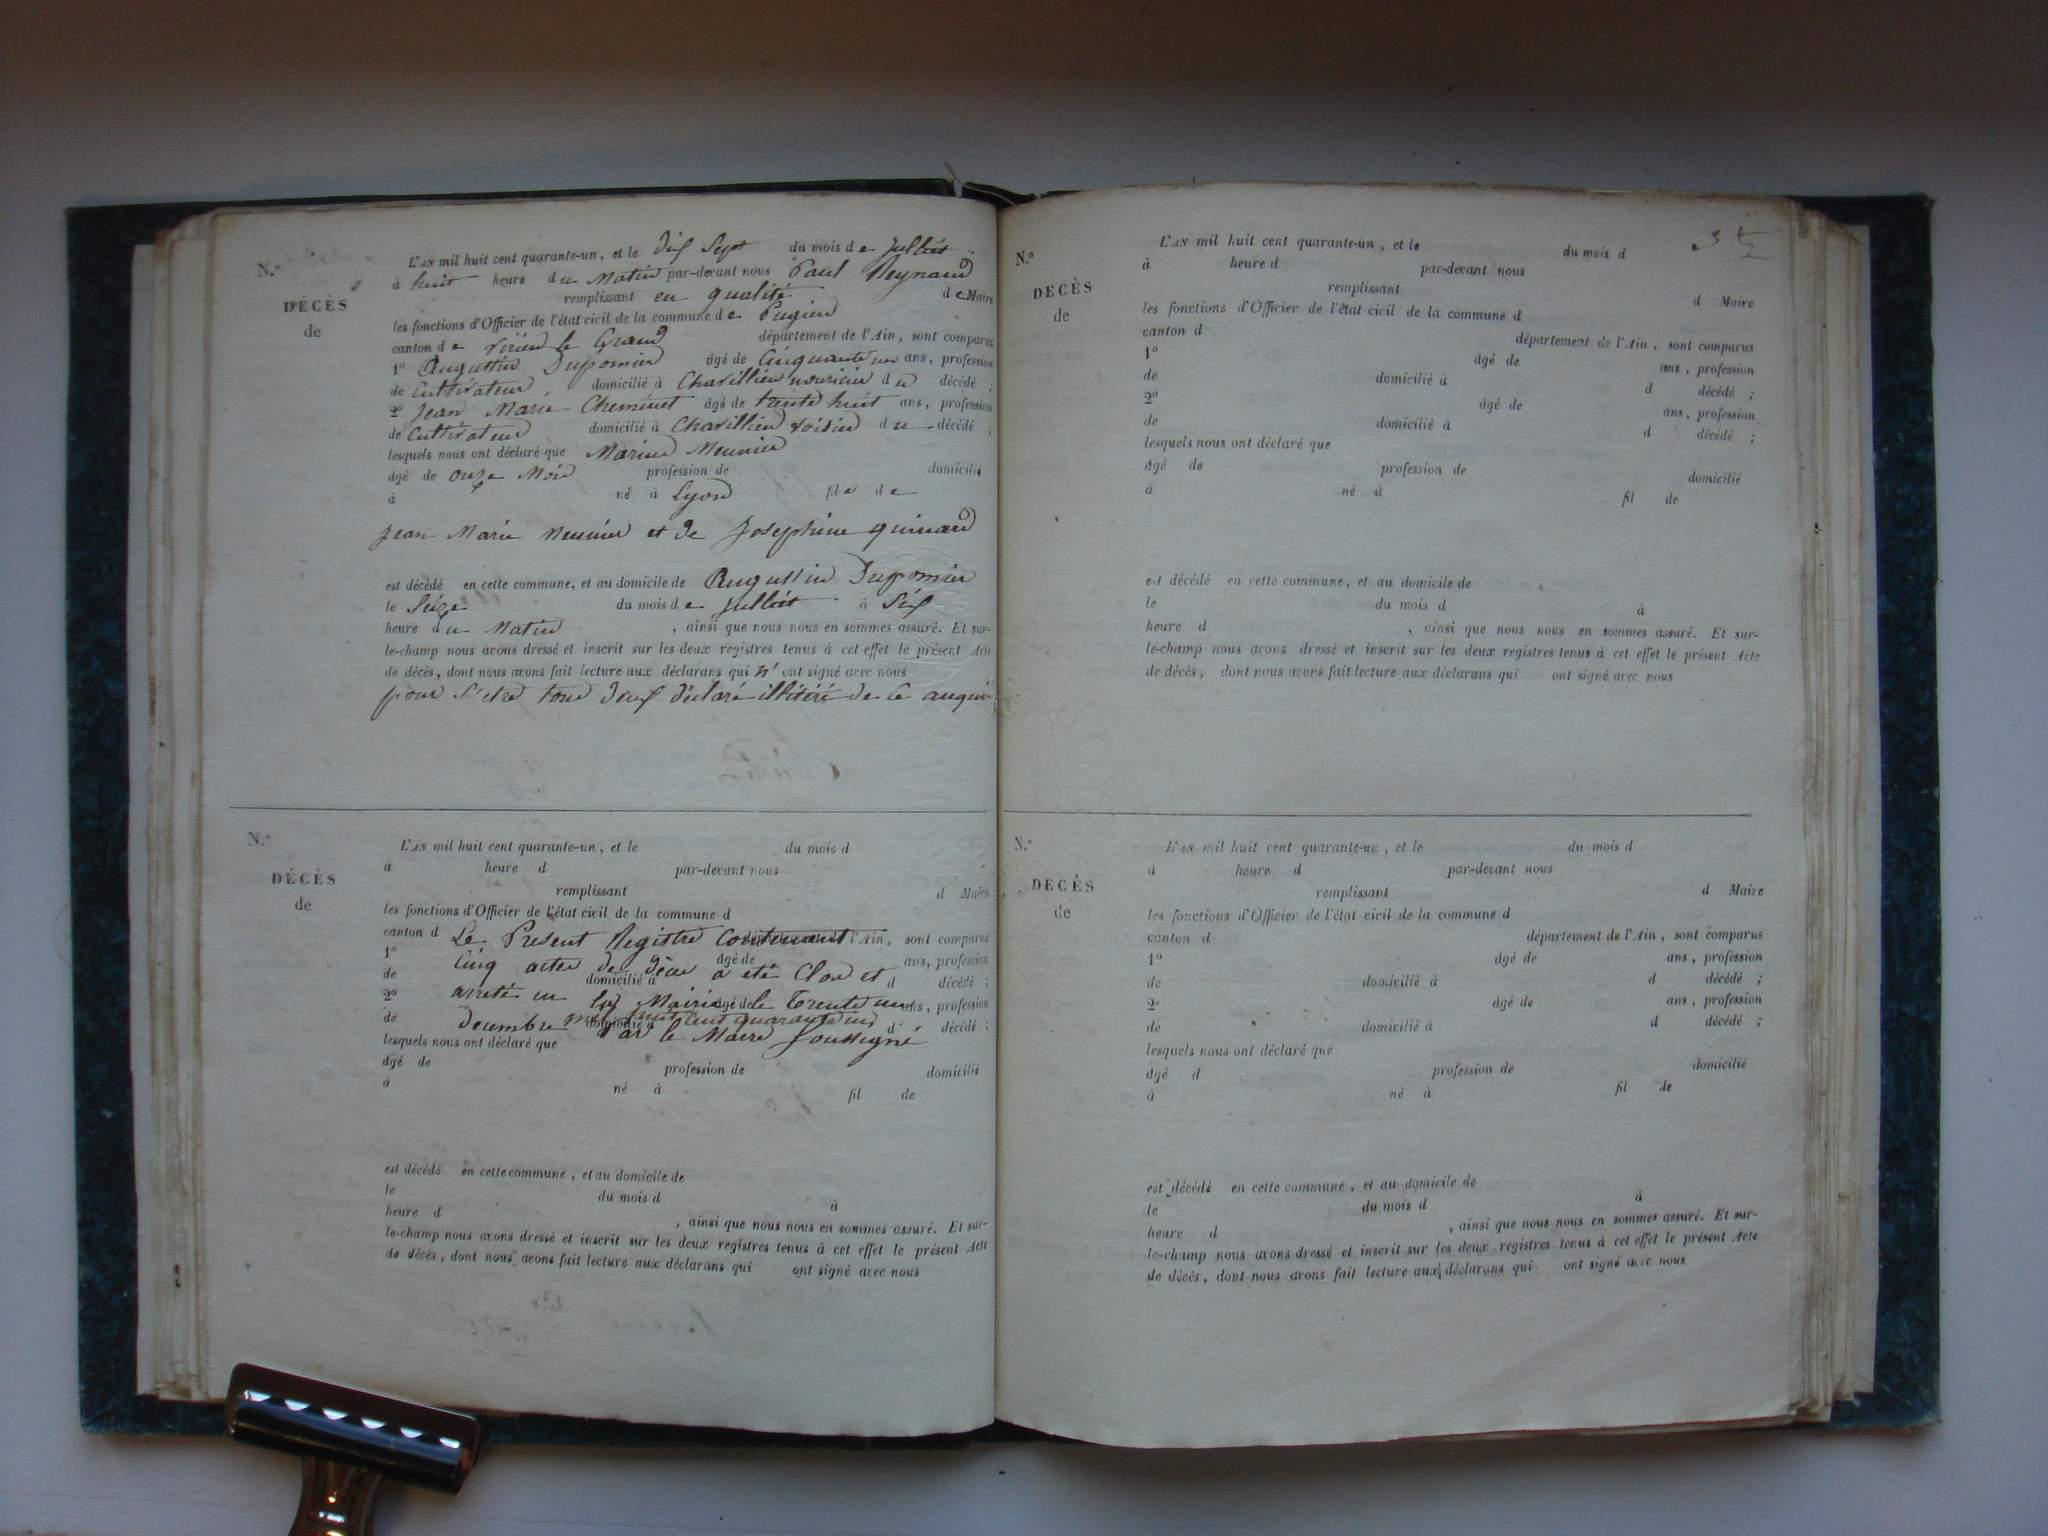 N.º
DÉCÈS
de
L'AN mil huit cent quarante-un, et le dix Sept du mois de Julliet
à huit heure du Matin par-devant nous Paul Reynaud
remplissant en qualité de Maire
les fonctions d'Officier de l'état civil de la commune de Pugieu
canton de virieu le Grand département de l'Ain, sont comparus
1º Augustin Dupomier âgé de Cinquante un ans, profession
de Cultivateur domicilié à Chavillieu nouricier du décédé ;
2º Jean Marie Cheminet âgé de trente huit ans, profession
de Cultivateur domicilié à Chavillieu voisin du décédé ;
lesquels nous ont déclaré que Marius Meunier
âgé de onze Mois profession de domicilié
à né à Lyon fils de
Jean Marie Meunier et de Josephine quinard
est décédé en cette commune, et au domicile de Augustin Dupomier
le Seize du mois de Julliet à Six
heure du Matin , ainsi que nous nous en sommes assuré. Et sur-
le-champ nous avons dressé et inscrit sur les deux registres tenus à cet effet le présent Acte
de décès, dont nous avons fait lecture aux déclarans qui n' ont signé avec nous
pour S'etre tous deux déclaré illitéré de ce enquis
N.º
DÉCÈS
de
L'AN mil huit cent quarante-un, et le du mois d
à heure d par-devant nous
remplissant d Maire
les fonctions d'Officier de l'état civil de la commune d
canton d département de l'Ain, sont comparus
Le Present Registre Contenant
1º âgé de ans, profession
Cinq actes de décès a été Clos et
de domicilié à d décédé ;
arreté en la Mairie le Trente un
2º âgé de ans, profession
decembre mil huit cent quarante un
de domicilié à d décédé ;
Par le Maire Soussigné
lesquels nous ont déclaré que
âgé de profession de domicilié
à né à fil de
est décédé en cette commune, et au domicile de
le du mois d à
heure d , ainsi que nous nous en sommes assuré. Et sur-
le-champ nous avons dressé et inscrit sur les deux registres tenus à cet effet le présent Acte
de décès, dont nous avons fait lecture aux déclarans qui ont signé avec nous
N.º
DÉCÈS
de
L'AN mil huit cent quarante-un, et le du mois d
à heure d par-devant nous
remplissant d Maire
les fonctions d'Officier de l'état civil de la commune d
canton d département de l'Ain, sont comparus
1º âgé de ans, profession
de domicilié à d décédé ;
2º âgé de ans, profession
de domicilié à d décédé ;
lesquels nous ont déclaré que
âgé de profession de domicilié
à né à fil de
est décédé en cette commune, et au domicile de
le du mois d à
heure d , ainsi que nous nous en sommes assuré. Et sur-
le-champ nous avons dressé et inscrit sur les deux registres tenus à cet effet le présent Acte
de décès, dont nous avons fait lecture aux déclarans qui ont signé avec nous
N.º
DÉCÈS
de
L'AN mil huit cent quarante-un, et le du mois d
à heure d par-devant nous
remplissant d Maire
les fonctions d'Officier de l'état civil de la commune d
canton d département de l'Ain, sont comparus
1º âgé de ans, profession
de domicilié à d décédé ;
2º âgé de ans, profession
de domicilié à d décédé ;
lesquels nous ont déclaré que
âgé d profession de domicilié
à né à fil de
est décédé en cette commune, et au domicile de
le du mois d à
heure d , ainsi que nous nous en sommes assuré. Et sur-
le-champ nous avons dressé et inscrit sur les deux registres tenus à cet effet le présent Acte
de décès, dont nous avons fait lecture aux déclarans qui ont signé avec nous